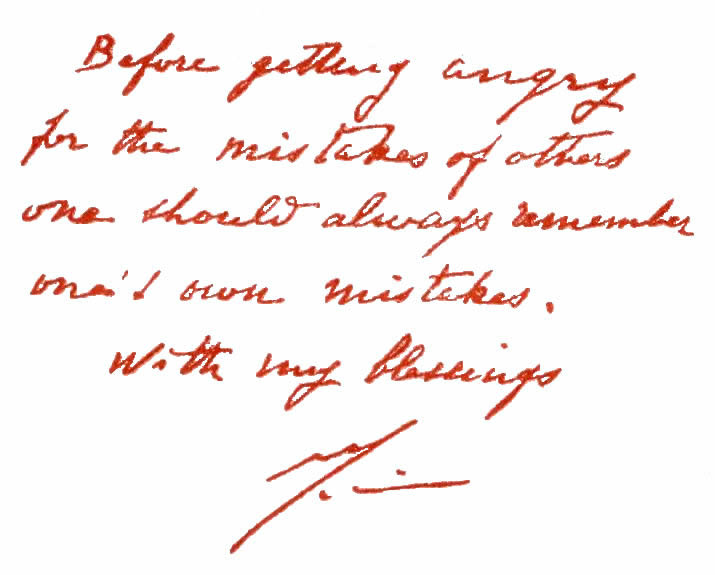 Before getting angry
for the mistakes of others
one should always remember
one's own mistakes.
With my blessings